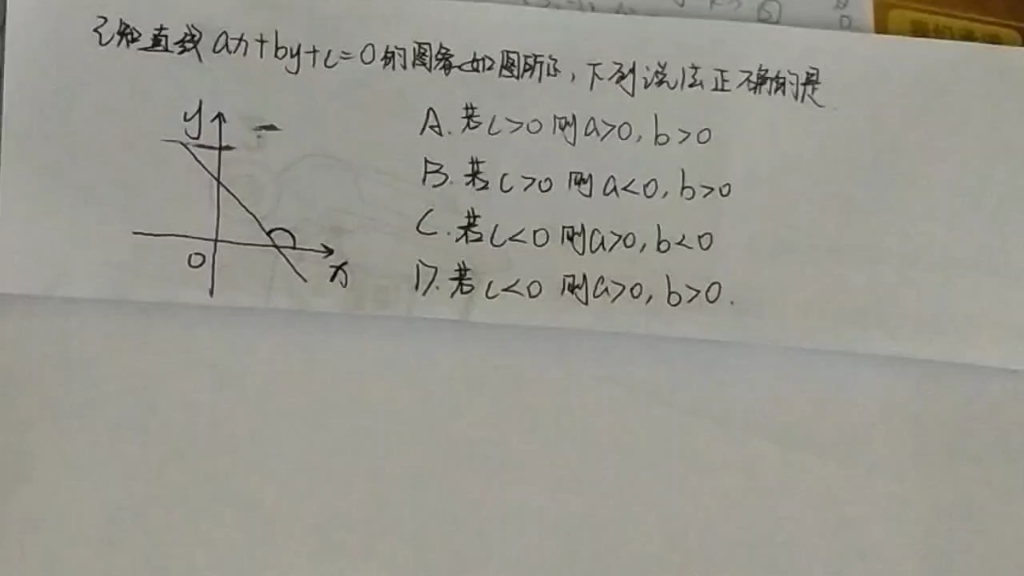 已知直线ax+by+c=0的图象如图所示,下列说法正确的是
A.若c>0则a>0,b>0
B.若c>0则a<0,b>0
C.若c<0则a>0,b<0
D.若c<0则a>0,b>0.
y
O
x